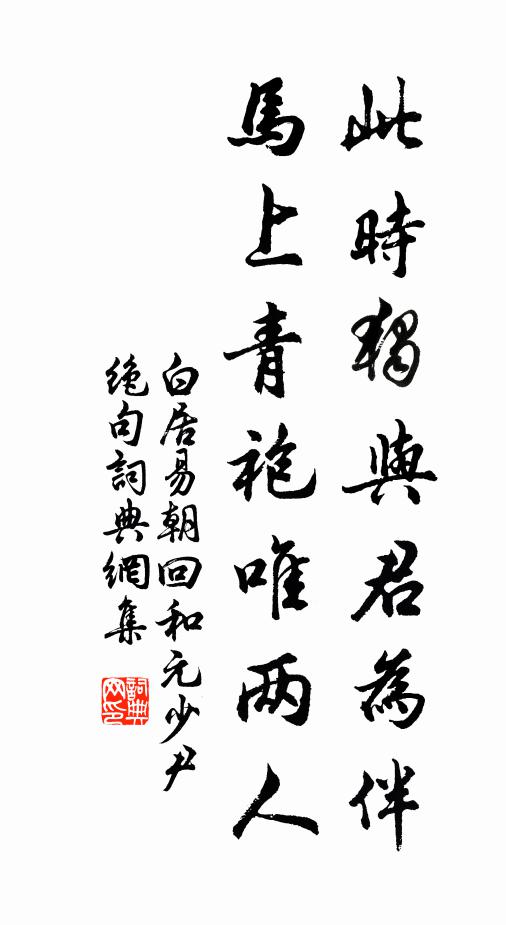 此時獨與君為伴
馬上青袍唯兩人
白居易朝回和元少尹
絕句詞典網集
詞典
网印